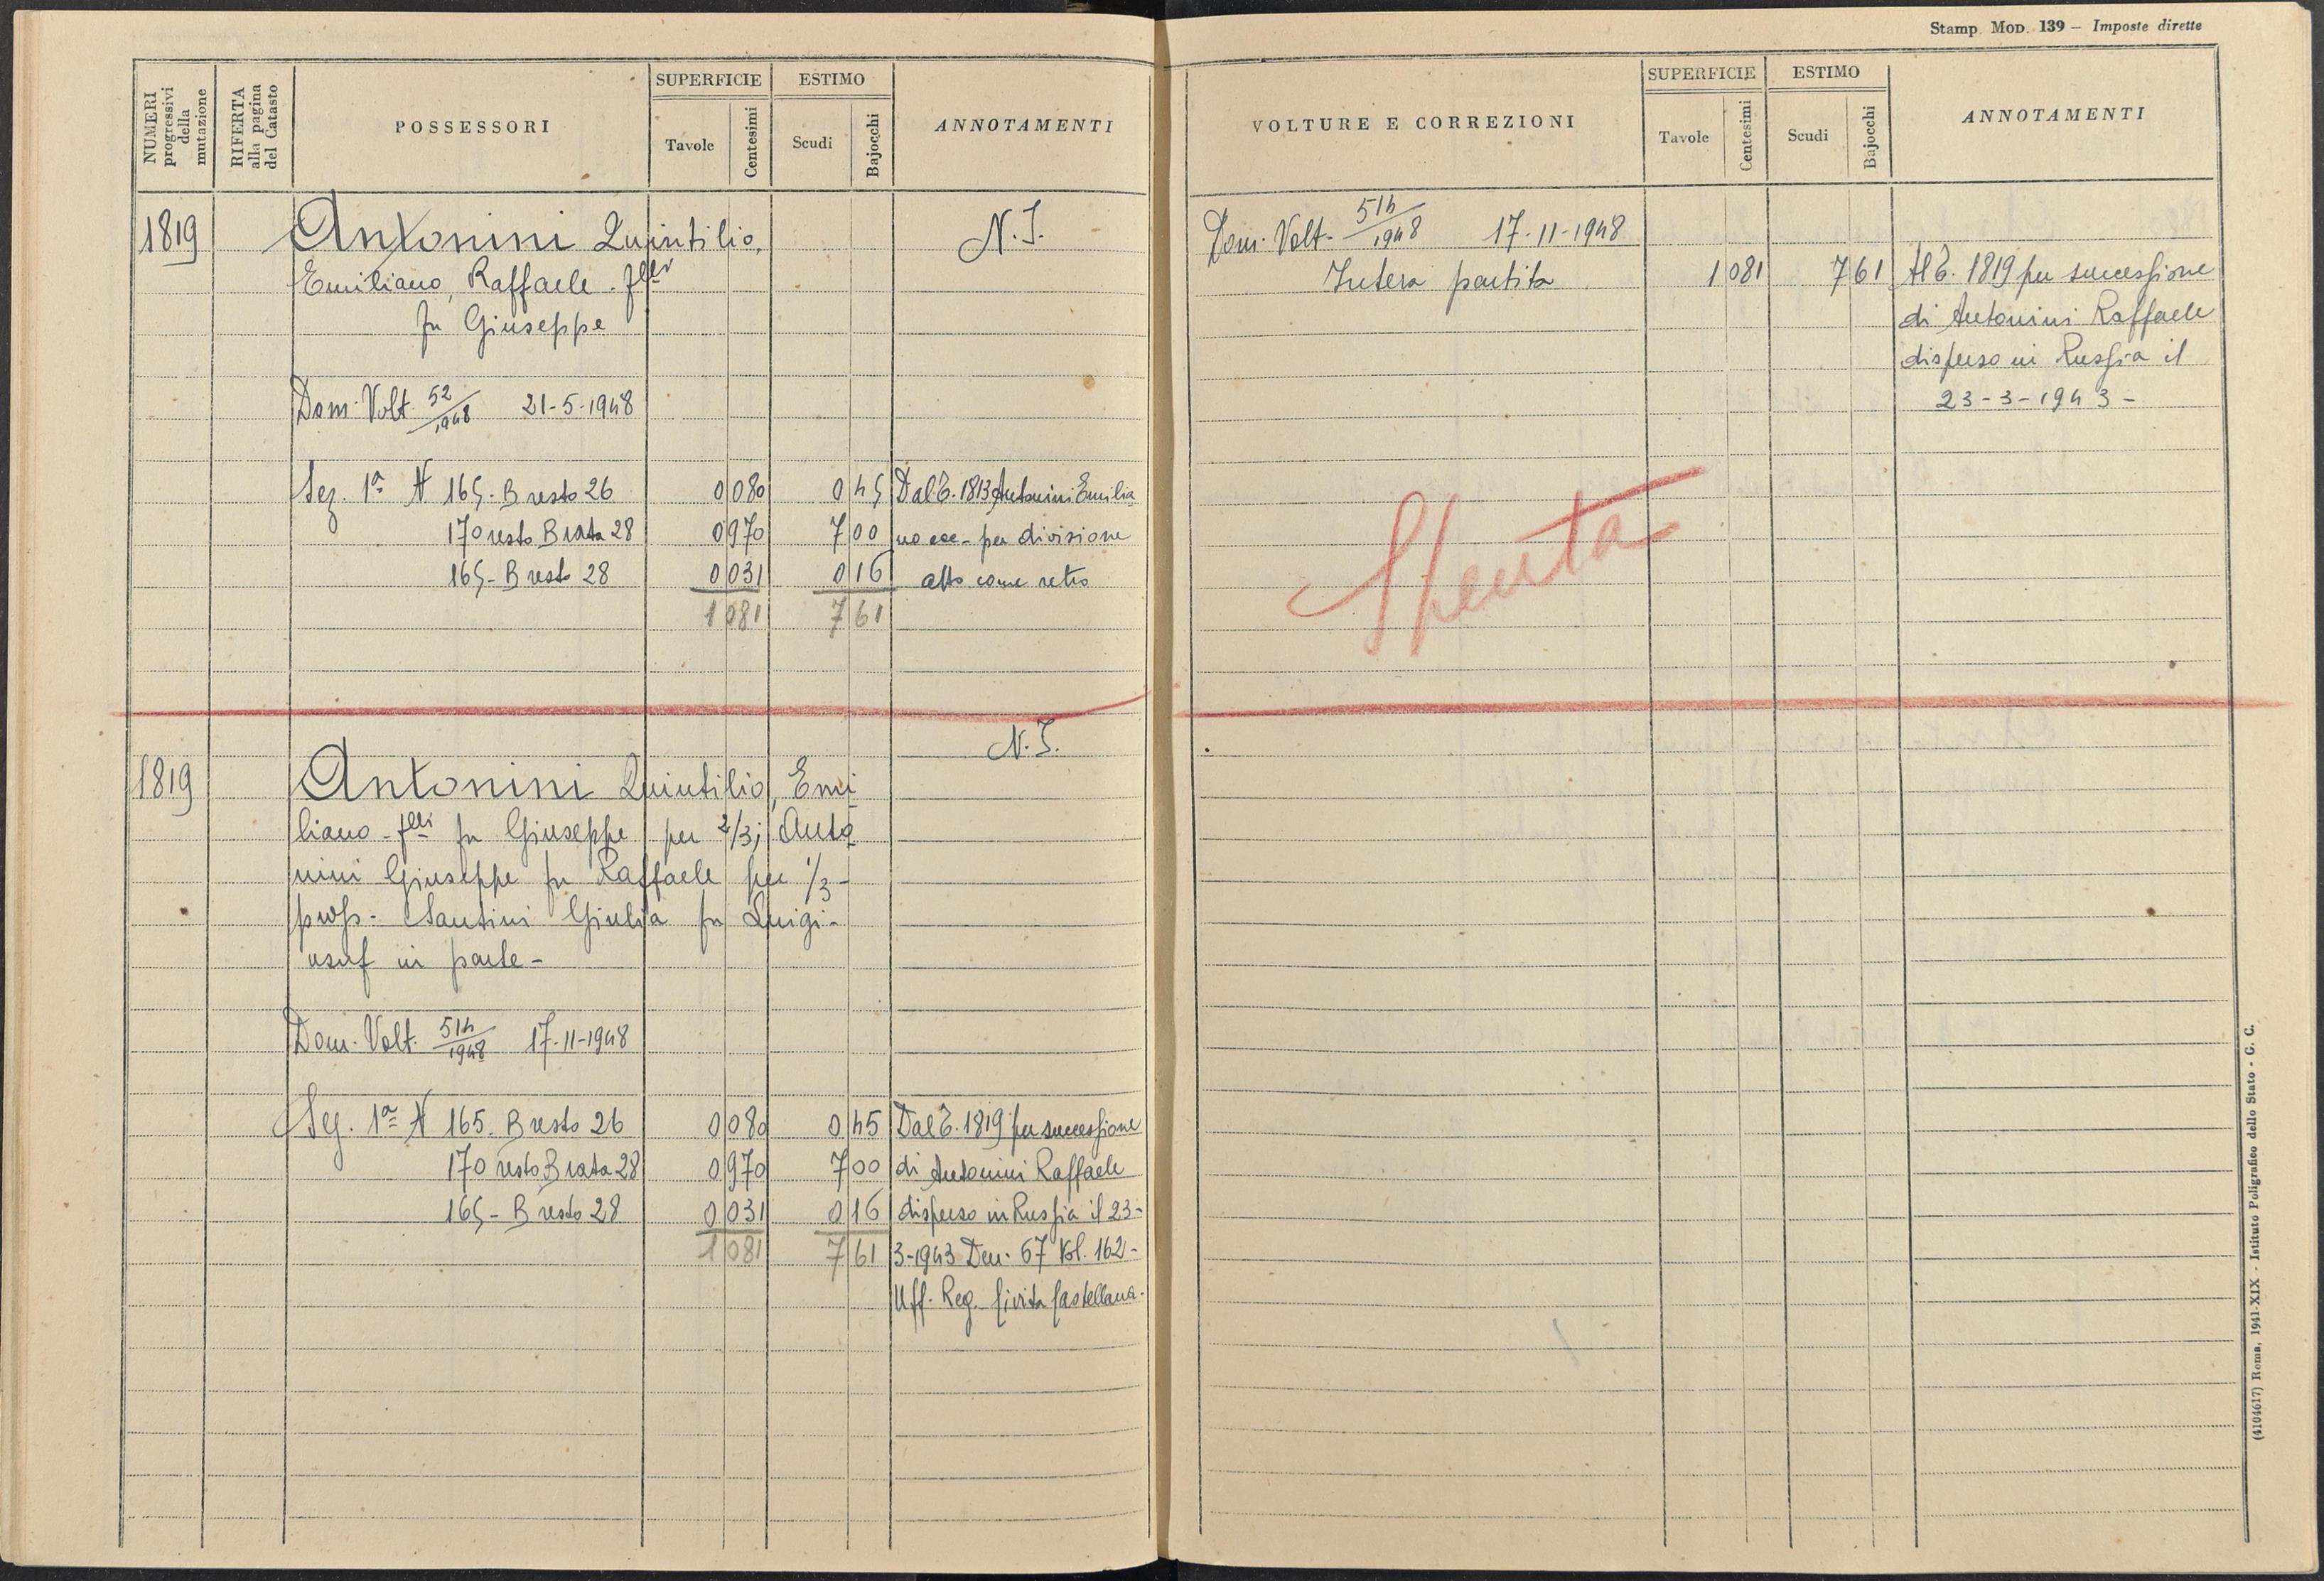 NUMERI progressivi della mutazione
RIFERTA alla pagina del Catasto
POSSESSORI
SUPERFICIE
Tavole
Centesimi
ESTIMO
Scudi
Bajocchi
ANNOTAMENTI
1819
Antonini Quintilio,
N.I.
Emiliano, Raffaele flli
fu Giuseppe
Dom. Volt. 52/1948 21-5-1948
Sez. 1ª N 165. B resto 26 0 080 0 45 Dal C. 1813 Antonini Emilia
170 resto B rata 28 0 970 7 00 no ecc- per divisione
165- B resto 28 0 031 0 16 atto come retro
1 081 7 61
N.I.
1819
Antonini Quintilio, Emi
liano - flli fu Giuseppe per 2/3; Anto
nini Giuseppe fu Raffaele per 1/3-
prop- Santini Giulia fu Luigi-
usuf in parte-
Dom. Volt. 514/1948 17-11-1948
Sez. 1ª N 165. B resto 26 0 080 0 45 Dal C. 1819 per successione
170 resto B rata 28 0 970 7 00 di Antonini Raffaele
165- B resto 28 0 031 0 16 disperso in Russia il 23-
1 081 7 61 3-1943 Den. 67 Vol. 162-
Uff. Reg. Civita Castellana-
Stamp. Mod. 139 – Imposte dirette
VOLTURE E CORREZIONI
SUPERFICIE
Tavole
Centesimi
ESTIMO
Scudi
Bajocchi
ANNOTAMENTI
Dom. Volt- 514/1948 17-11-1948
Intera partita 1 081 7 61 Al C. 1819 per successione
di Antonini Raffaele
disperso in Russia il
23-3-1943-
Spenta
(4104617) Roma, 1941-XIX - Istituto Poligrafico dello Stato - G. C.